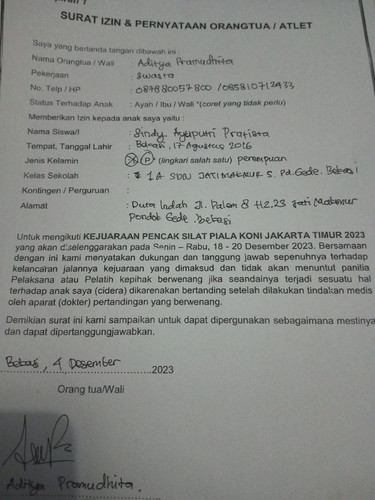 SURAT IZIN & PERNYATAAN ORANGTUA / ATLET
Saya yang bertanda tangan dibawah ini :
Nama Orangtua / Wali : Aditya Pramudhita
Pekerjaan : Swasta
No. Telp / HP : 087880057800 /085810712433
Status Terhadap Anak : Ayah / Ibu / Wali *(coret yang tidak perlu)
Memberikan Izin kepada anak saya yaitu :
Nama Siswa/I : Sindy Ayuputri Pratista
Tempat, Tanggal Lahir : Bekasi, 17 Agustus 2016
Jenis Kelamin : P (lingkari salah satu) perempuan
Kelas Sekolah : 1A SDN JATIMAKMUR 5. Pd. Gede. Bekasi
Kontingen / Perguruan :
Alamat : Duta Indah Jl. Palam 8 H2.23 Jati Makmur
Pondok Gede. Bekasi
Untuk mengikuti KEJUARAAN PENCAK SILAT PIALA KONI JAKARTA TIMUR 2023
yang akan diselenggarakan pada Senin – Rabu, 18 - 20 Desember 2023. Bersamaan
dengan ini kami menyatakan dukungan dan tanggung jawab sepenuhnya terhadap
kelancaran jalannya kejuaraan yang dimaksud dan tidak akan menuntut panitia
Pelaksana atau Pelatih kepihak berwenang jika seandainya terjadi sesuatu hal
terhadap anak saya (cidera) dikarenakan bertanding setelah dilakukan tindakan medis
oleh aparat (dokter) pertandingan yang berwenang.
Demikian surat ini kami sampaikan untuk dapat dipergunakan sebagaimana mestinya
dan dapat dipertanggungjawabkan.
Bekasi, 4 Desember 2023
Orang tua/Wali
Aditya Pramudhita.